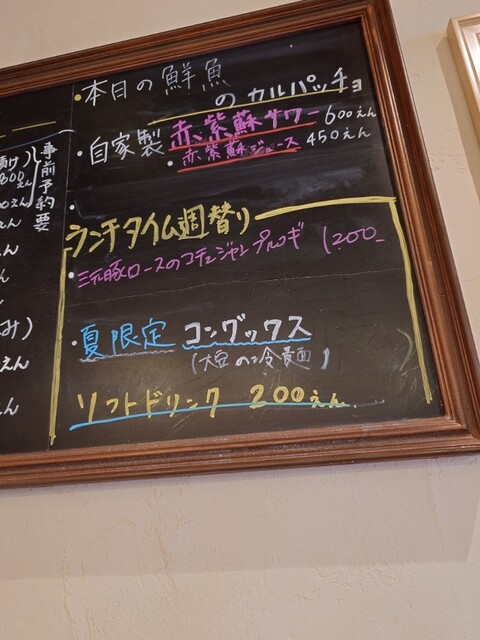 ・本日の鮮魚
のカルパッチョ
・自家製 赤紫蘇サワー 600えん
・赤紫蘇ジュース 450えん
ランチタイム週替り
・三元豚ロースのコチュジャンプルコギ 1200-
・夏限定 コングックス
(大豆の冷麺)
ソフトドリンク 200えん
事前予約要
漬け)
800えん
0えん
えん
えん
み)
えん
えん